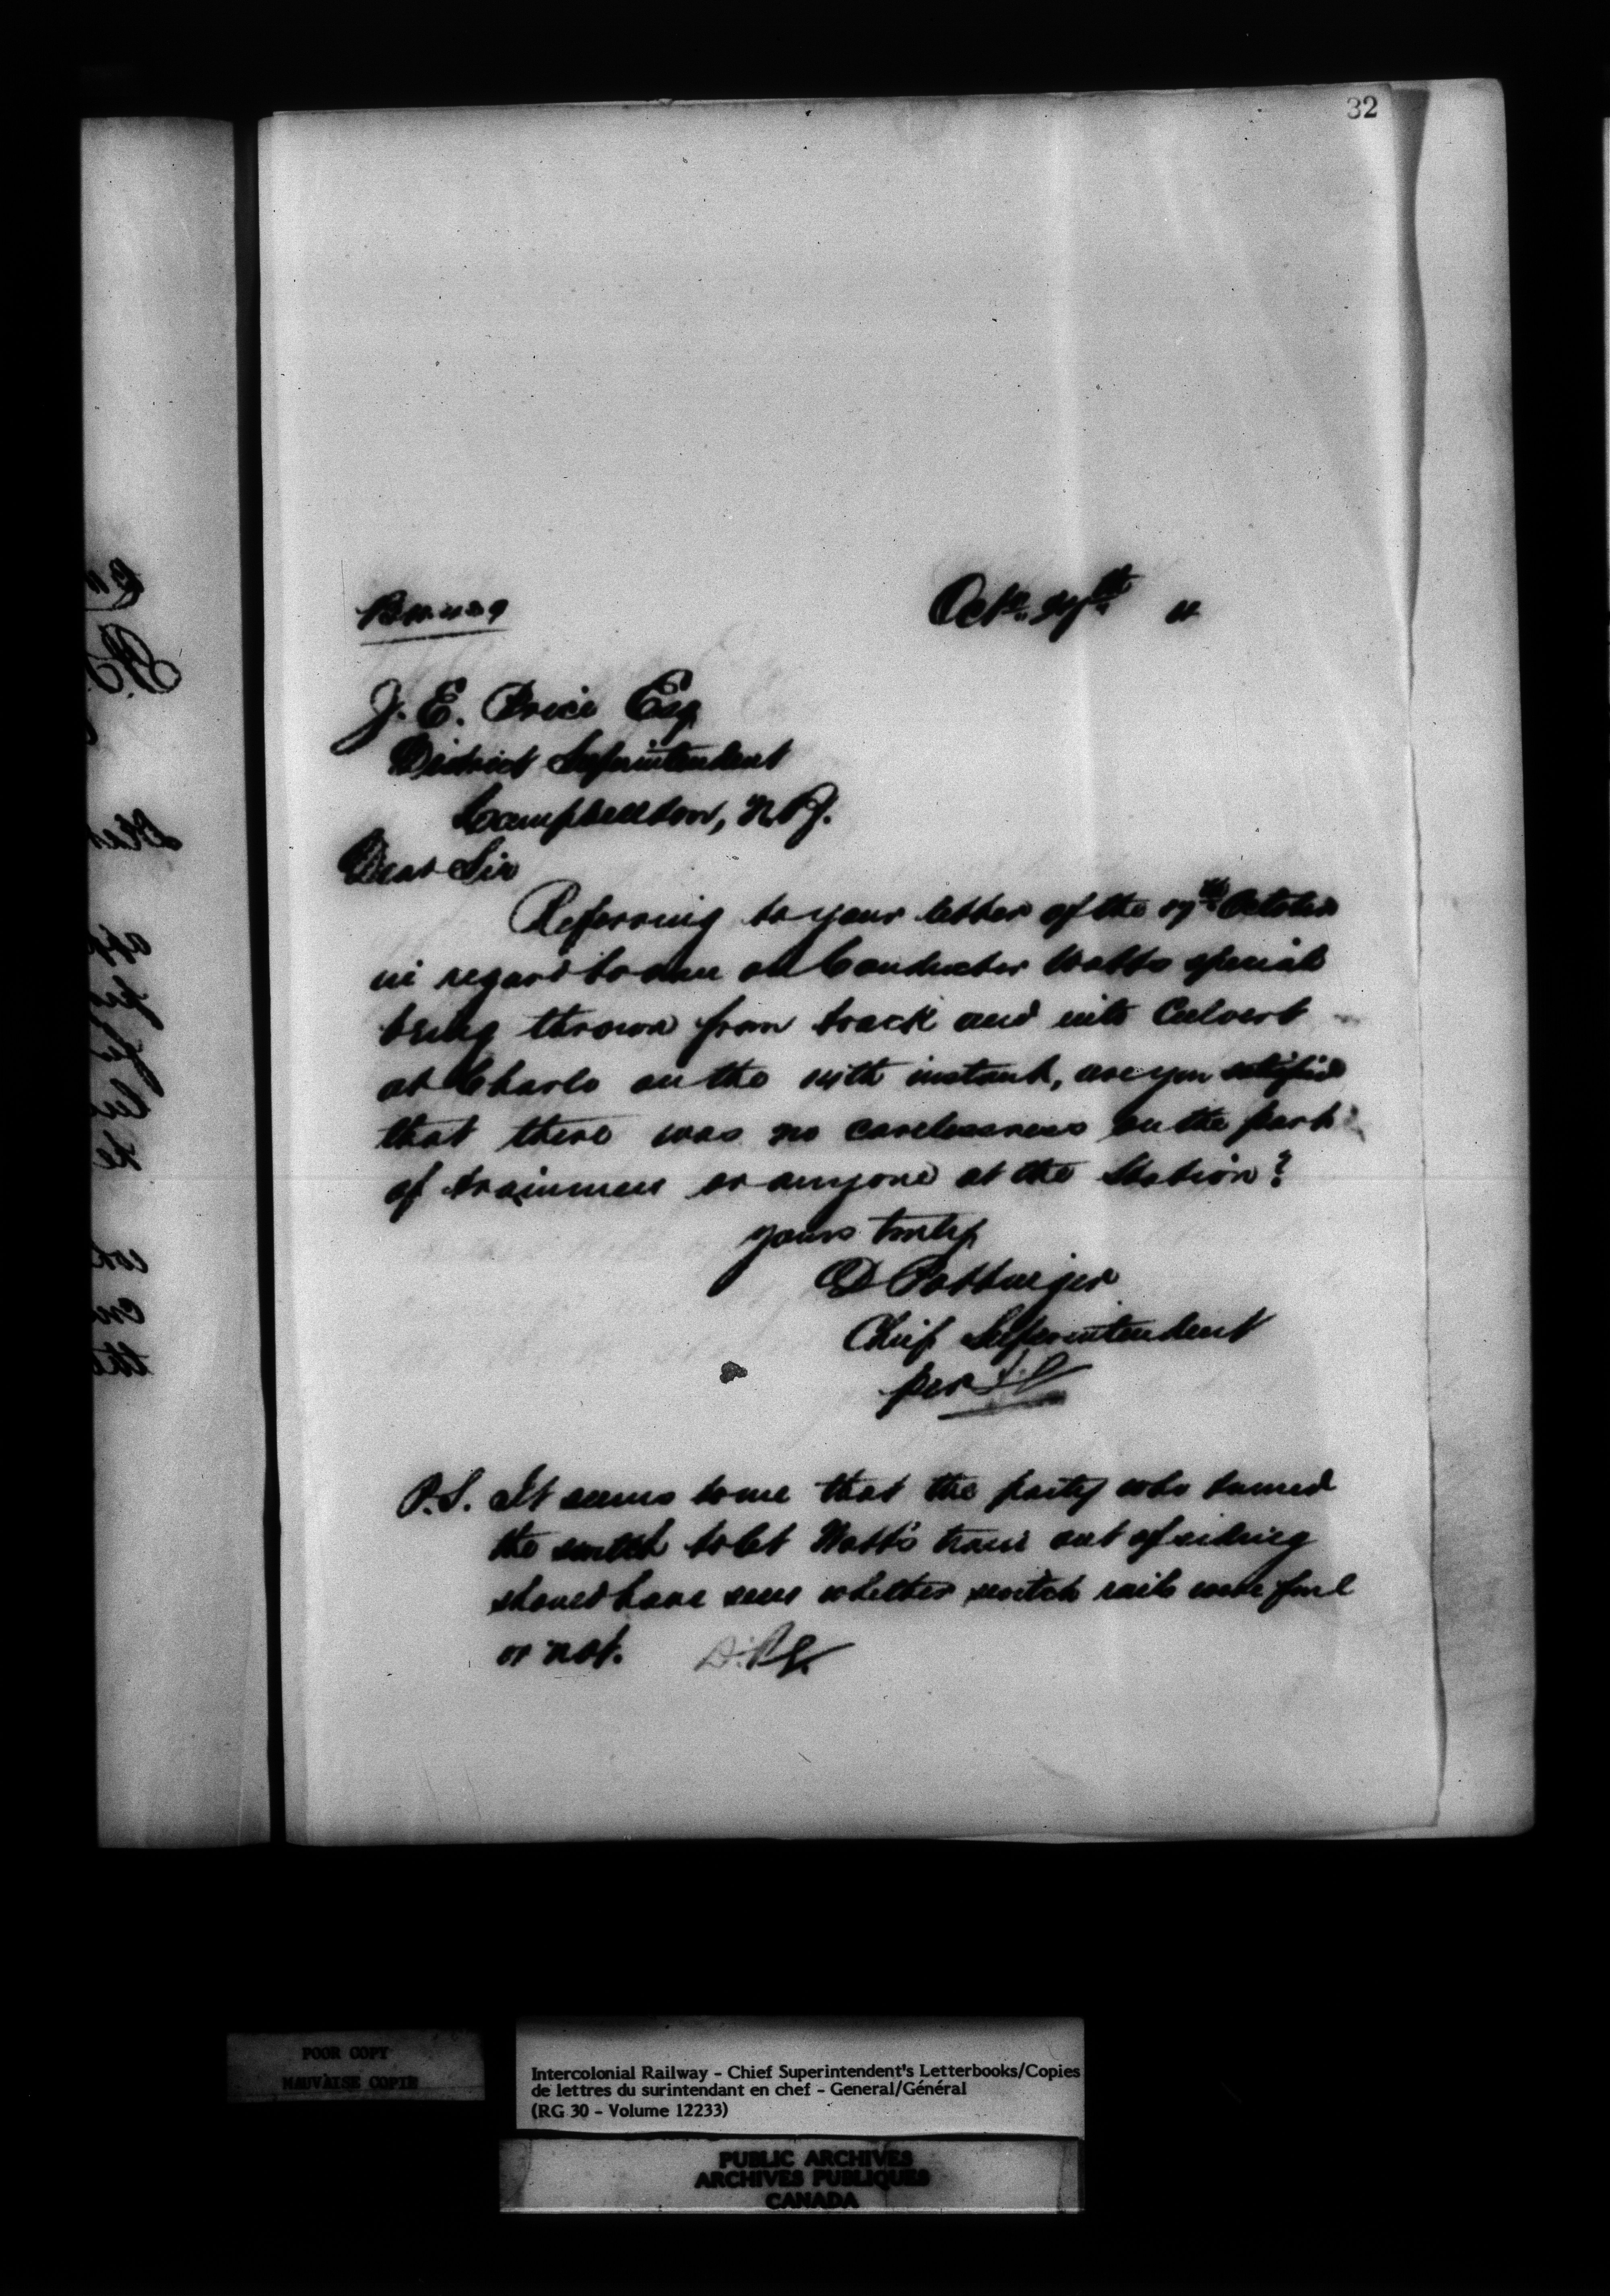 32
Octr. th
J. E. Price Esq
District Superintendent
Campbellton, N.B.
Dear Sir
Referring to your letter of the October
in regard to on Conductor Watts special
being thrown from track and into Culvert
at Charlo on the instant, are you satisfied
that there was no carelessness on the part
of trainmen or anyone at the Station?
yours truly
D Pottinger
Chief Superintendent
per
P.S. It seems to me that the party who turned
the switch to let Watt's train out of siding
should have seen whether switch rails were
or not. D.P.
POOR COPY
MAUVAISE COPIE
Intercolonial Railway - Chief Superintendent's Letterbooks/Copies
de lettres du surintendant en chef - General/Général
(RG 30 - Volume 12233)
PUBLIC ARCHIVES
ARCHIVES PUBLIQUES
CANADA